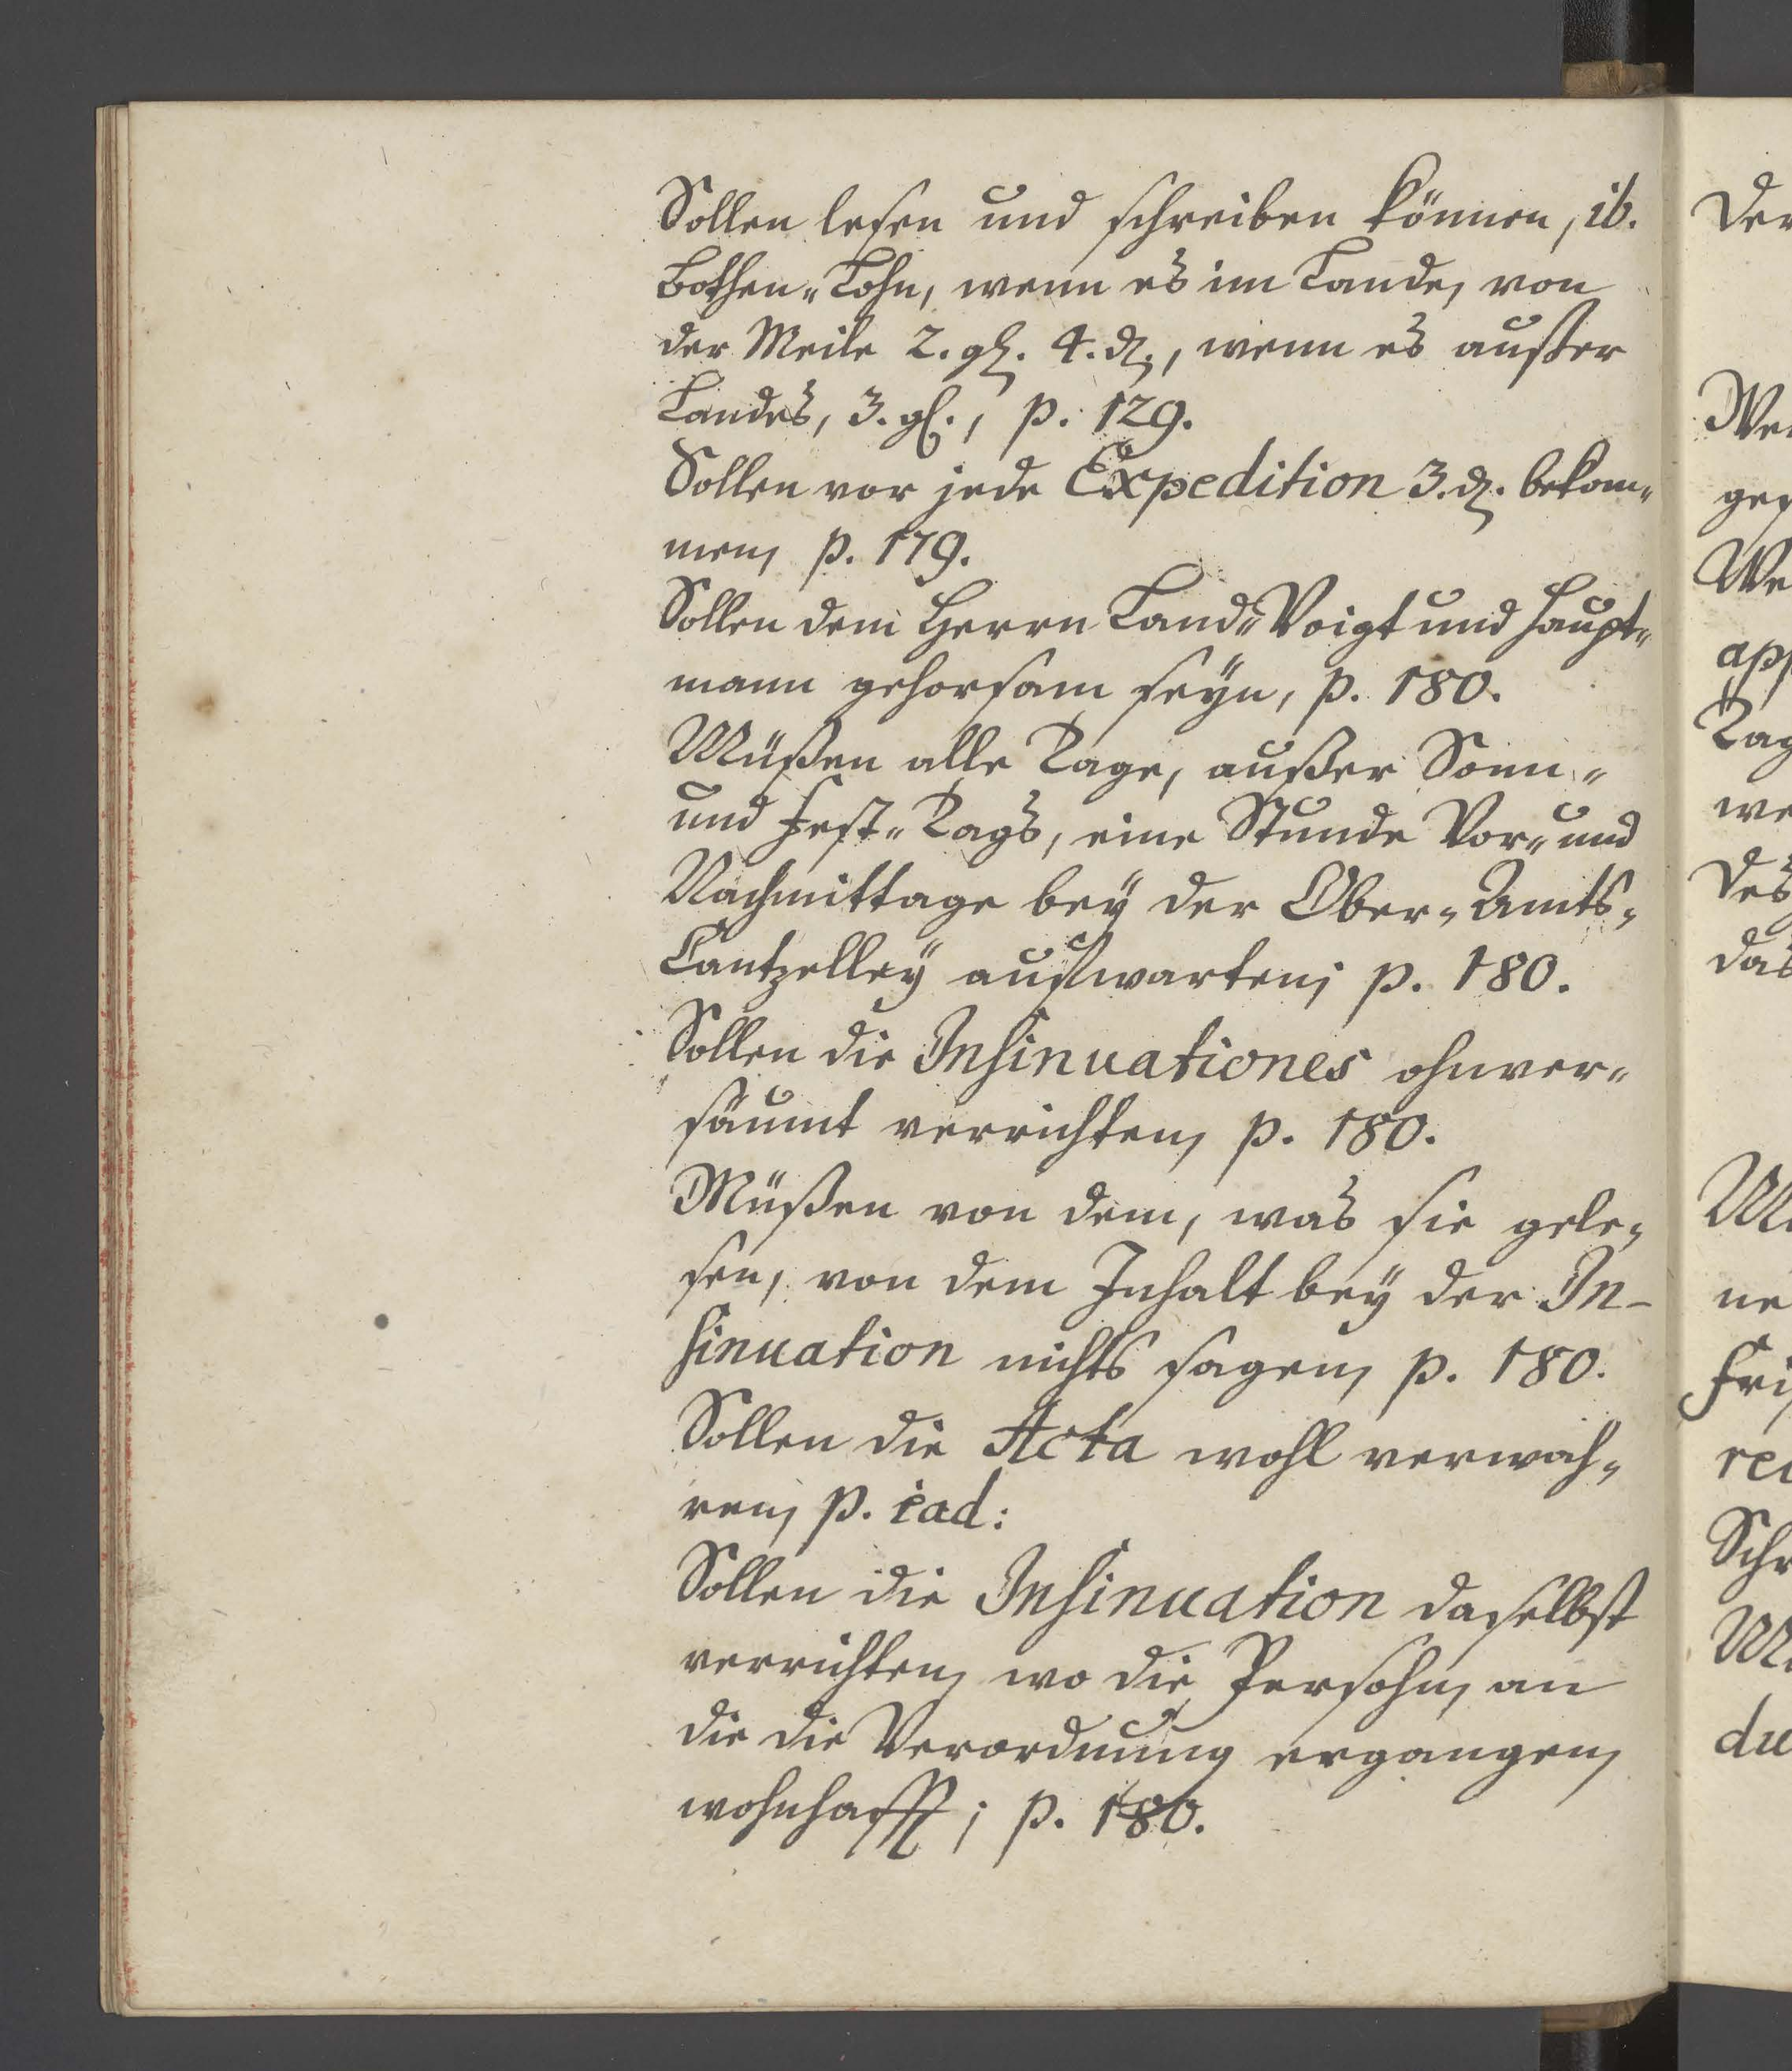 Sollen lesen und schreiben können, ib.
Bothen-Lohn, wenn es im Lande, von
der Meile 2. gl. 4. d., wenn es außer
Landes, 3. gl., p. 129.
Sollen vor jede Expedition 3. d. bekom-
men, p. 179.
Sollen dem Herrn Land-Voigt und Haupt-
mann gehorsam seyn, p. 180.
Müßen alle Tage, außer Sonn-
und Fest-Tags, eine Stunde Vor- und
Nachmittage bey der Ober-Amts-
Cantzelley aufwarten; p. 180.
Sollen die Insinuationes ohnver-
säumt verrichten, p. 180.
Müßen von dem, was sie gele-
sen, von dem Inhalt bey der In-
sinuation nichts sagen, p. 180.
Sollen die Acta wohl verwah-
ren, p. ead:
Sollen die Insinuation daselbst
verrichten, wo die Persohn, an
die die Verordnung ergangen,
wohnhafft; p. 180.
Der
We
We
app
Tag
we
Des
das
ne
Schr